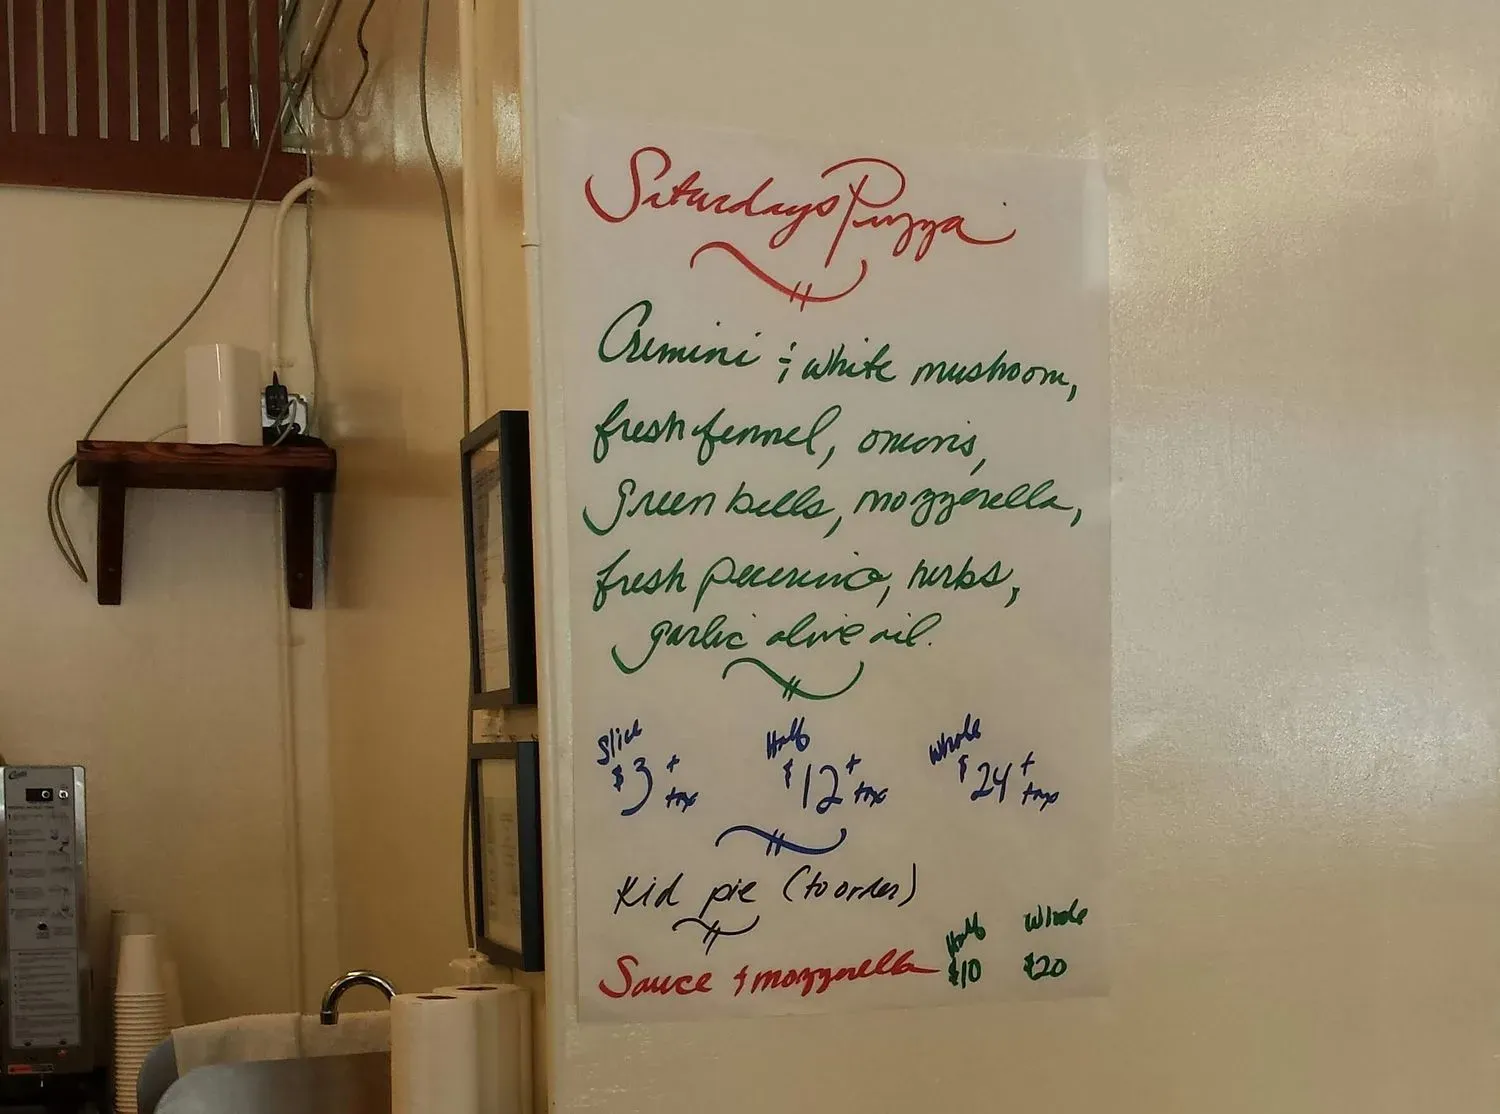 Saturdays Pizza
Cremini & white mushroom,
fresh fennel, onions,
green bells, mozzerella,
fresh pecorino, herbs,
garlic olive oil.
Slice Half Whole
$3 + tax $12 + tax $24 + tax
Kid pie (to order)
Half Whole
Sauce & mozzerella $10 $20